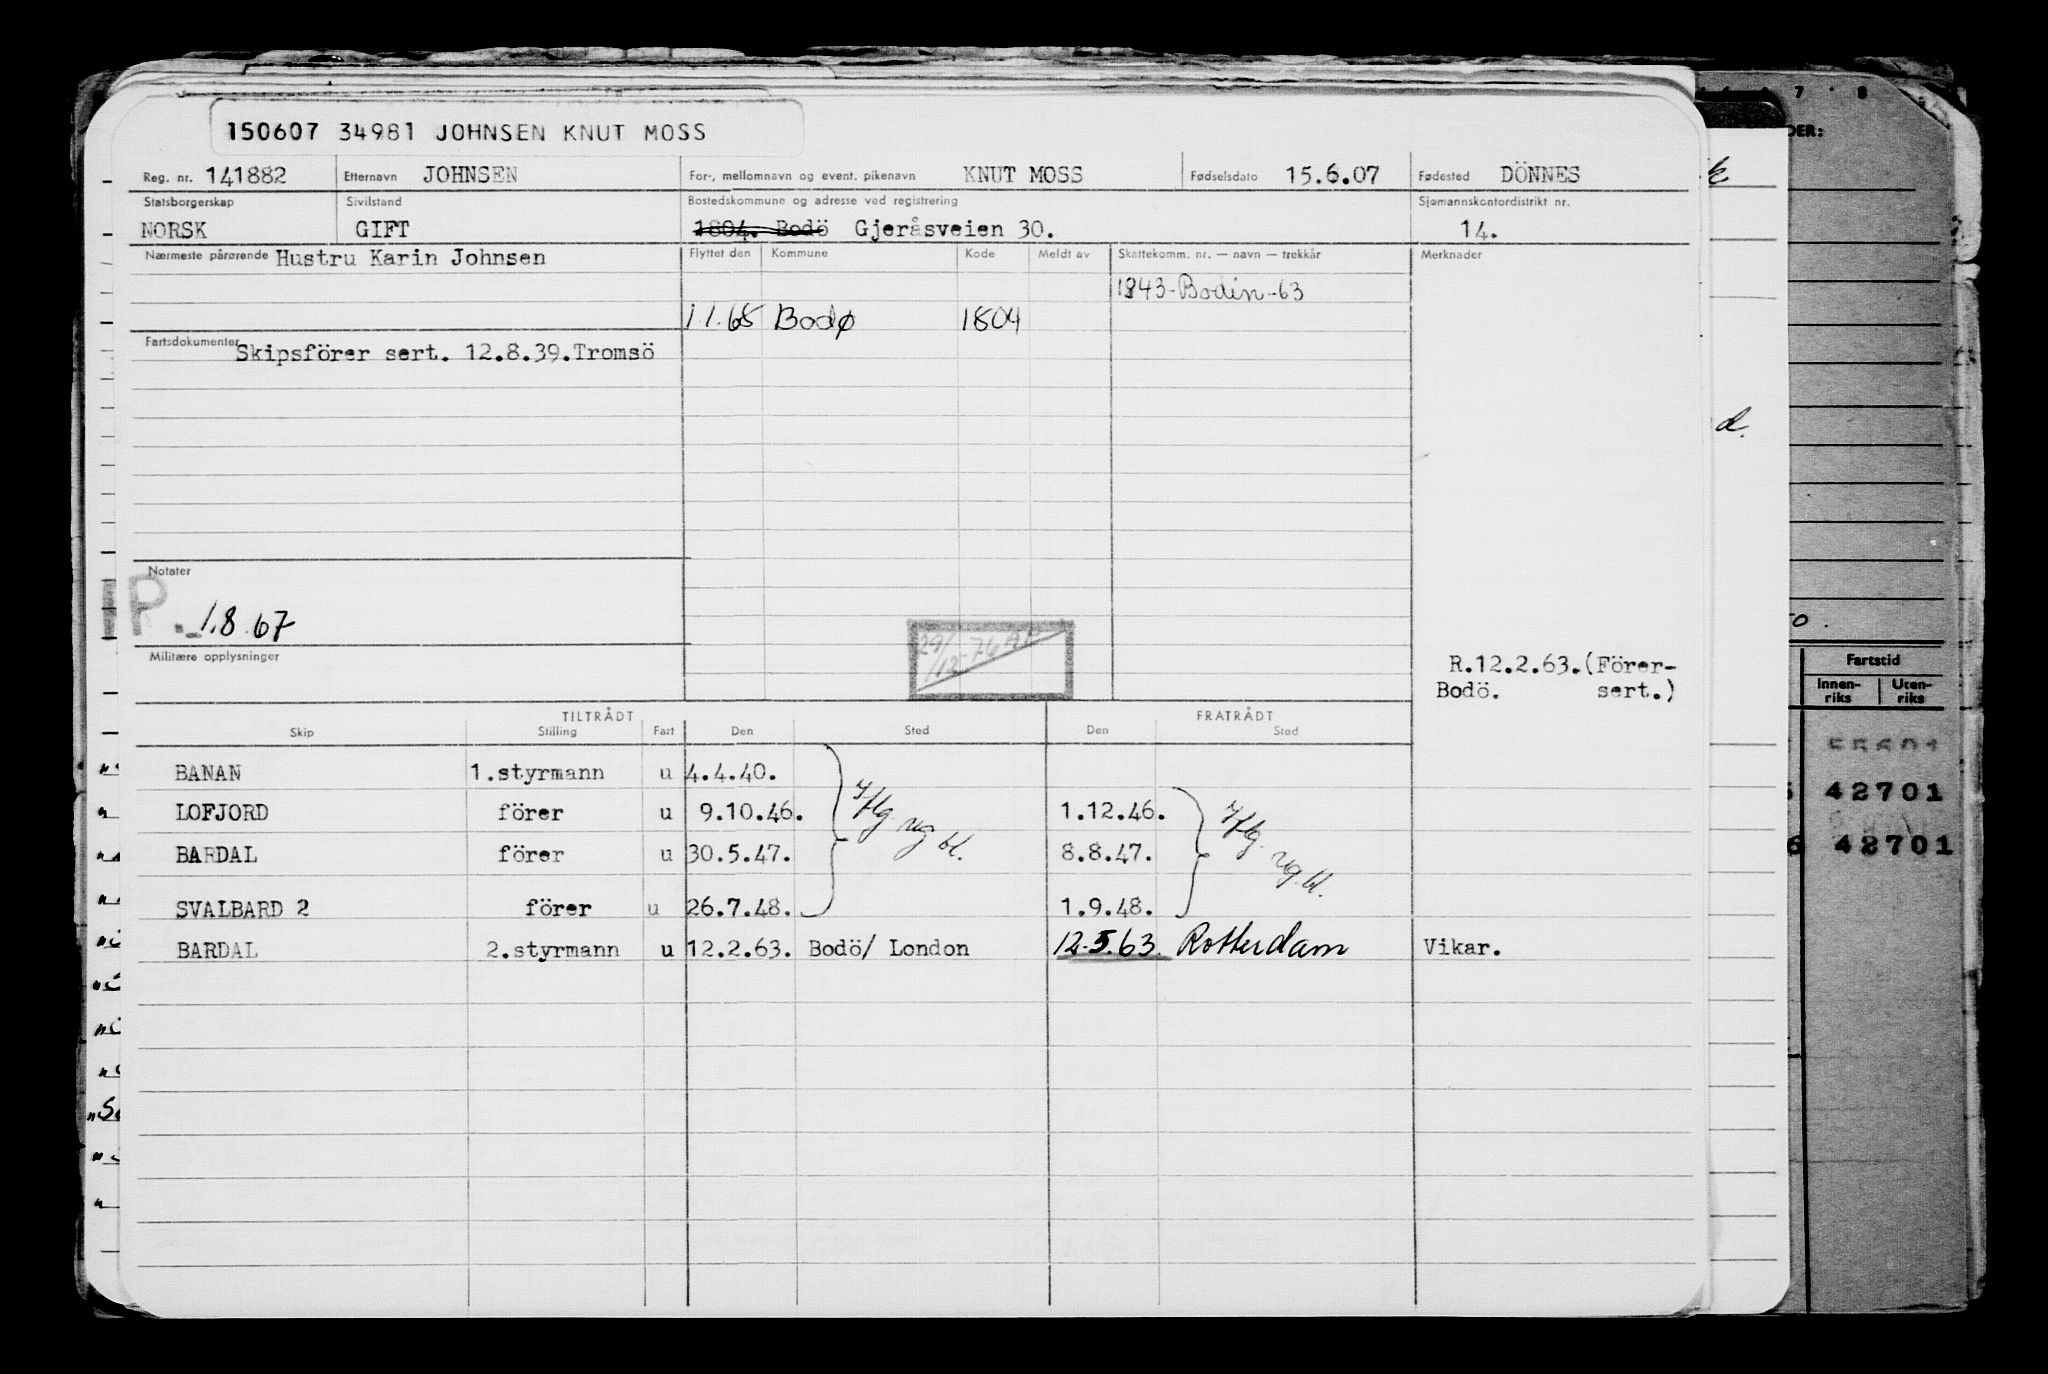 150607 34981 JOHNSEN KNUT MOSS
Reg. nr. 141882 Etternavn JOHNSEN For-, mellomnavn og event. pikenavn KNUT MOSS Fødselsdato 15.6.07 Fødested DÖNNES
Statsborgerskap Sivilstand Bostedskommune og adresse ved registrering Sjømannskontordistrikt nr.
NORSK GIFT 1804. Bodö Gjeråsveien 30. 14.
Nærmeste pårørende Hustru Karin Johnsen Flyttet den Kommune Kode Meldt av Skattekomm. nr. — navn — trekkår Merknader
1843-Bodin-63
1.1.68 Bodø 1804
Fartsdokumenter Skipsförer sert. 12.8.39.Tromsö
Notater
IP. 1.8.67
29/12-76
Militære opplysninger
R.12.2.63.(Förer-
Bodö. sert.)
TILTRÅDT FRATRÅDT
Skip Stilling Fart Den Sted Den Sted
BANAN 1.styrmann u 4.4.40.
LOFJORD förer u 9.10.46. iflg. rg. bl. 1.12.46. iflg. rg. bl.
BARDAL förer u 30.5.47. 8.8.47.
SVALBARD 2 förer u 26.7.48. 1.9.48.
BARDAL 2.styrmann u 12.2.63. Bodö/ London 12.5.63. Rotterdam Vikar.
7 8
DER:
k
d.
Fartstid
Innen-
riks Uten-
riks
55601
42701
6 42701